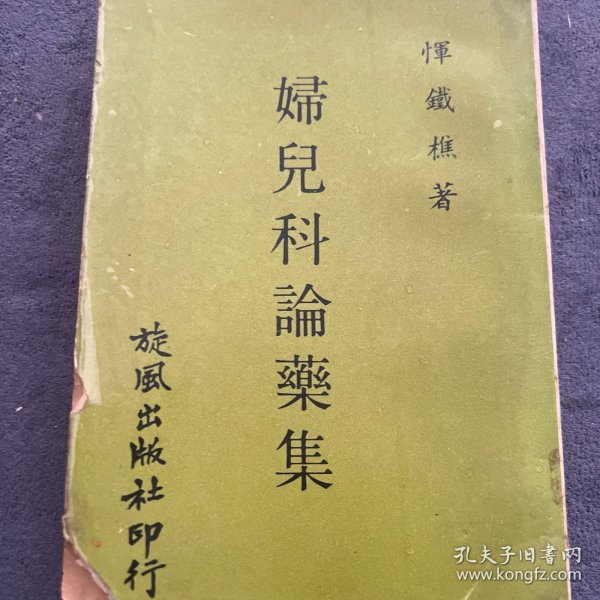 惲鐵樵著
婦兒科論藥集
旋風出版社印行
孔夫子旧书网
www.kongfz.com